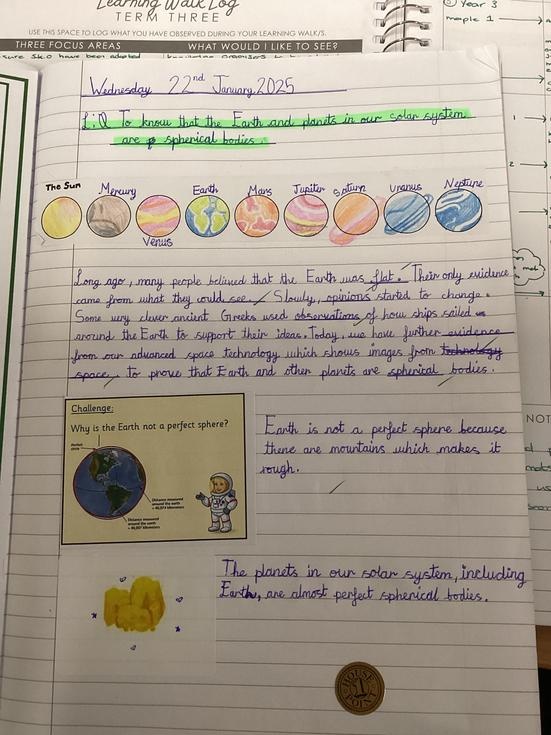 Learning Walk Log
TERM THREE
USE THIS SPACE TO LOG WHAT YOU HAVE OBSERVED DURING YOUR LEARNING WALK/S.
THREE FOCUS AREAS WHAT WOULD I LIKE TO SEE?
Year 3
maple 1
Wednesday 22nd January 2025
L.Q To know that the Earth and planets in our solar system
are spherical bodies.
The Sun Mercury Venus Earth Mars Jupiter Saturn Uranus Neptune
Long ago, many people believed that the Earth was flat. Their only evidence
came from what they could see. Slowly, opinions started to change.
Some very clever ancient Greeks used observations of how ships sailed
around the Earth to support their ideas. Today, we have further evidence
from our advanced space technology which shows images from technology
space, to prove that Earth and other planets are spherical bodies.
Challenge:
Why is the Earth not a perfect sphere?
Perfect
circle
Distance measured
around the earth
Distance measured
around the earth
Earth is not a perfect sphere because
there are mountains which makes it
rough.
The planets in our solar system, including
Earth, are almost perfect spherical bodies.
HOUSE
1
POINT
NOT